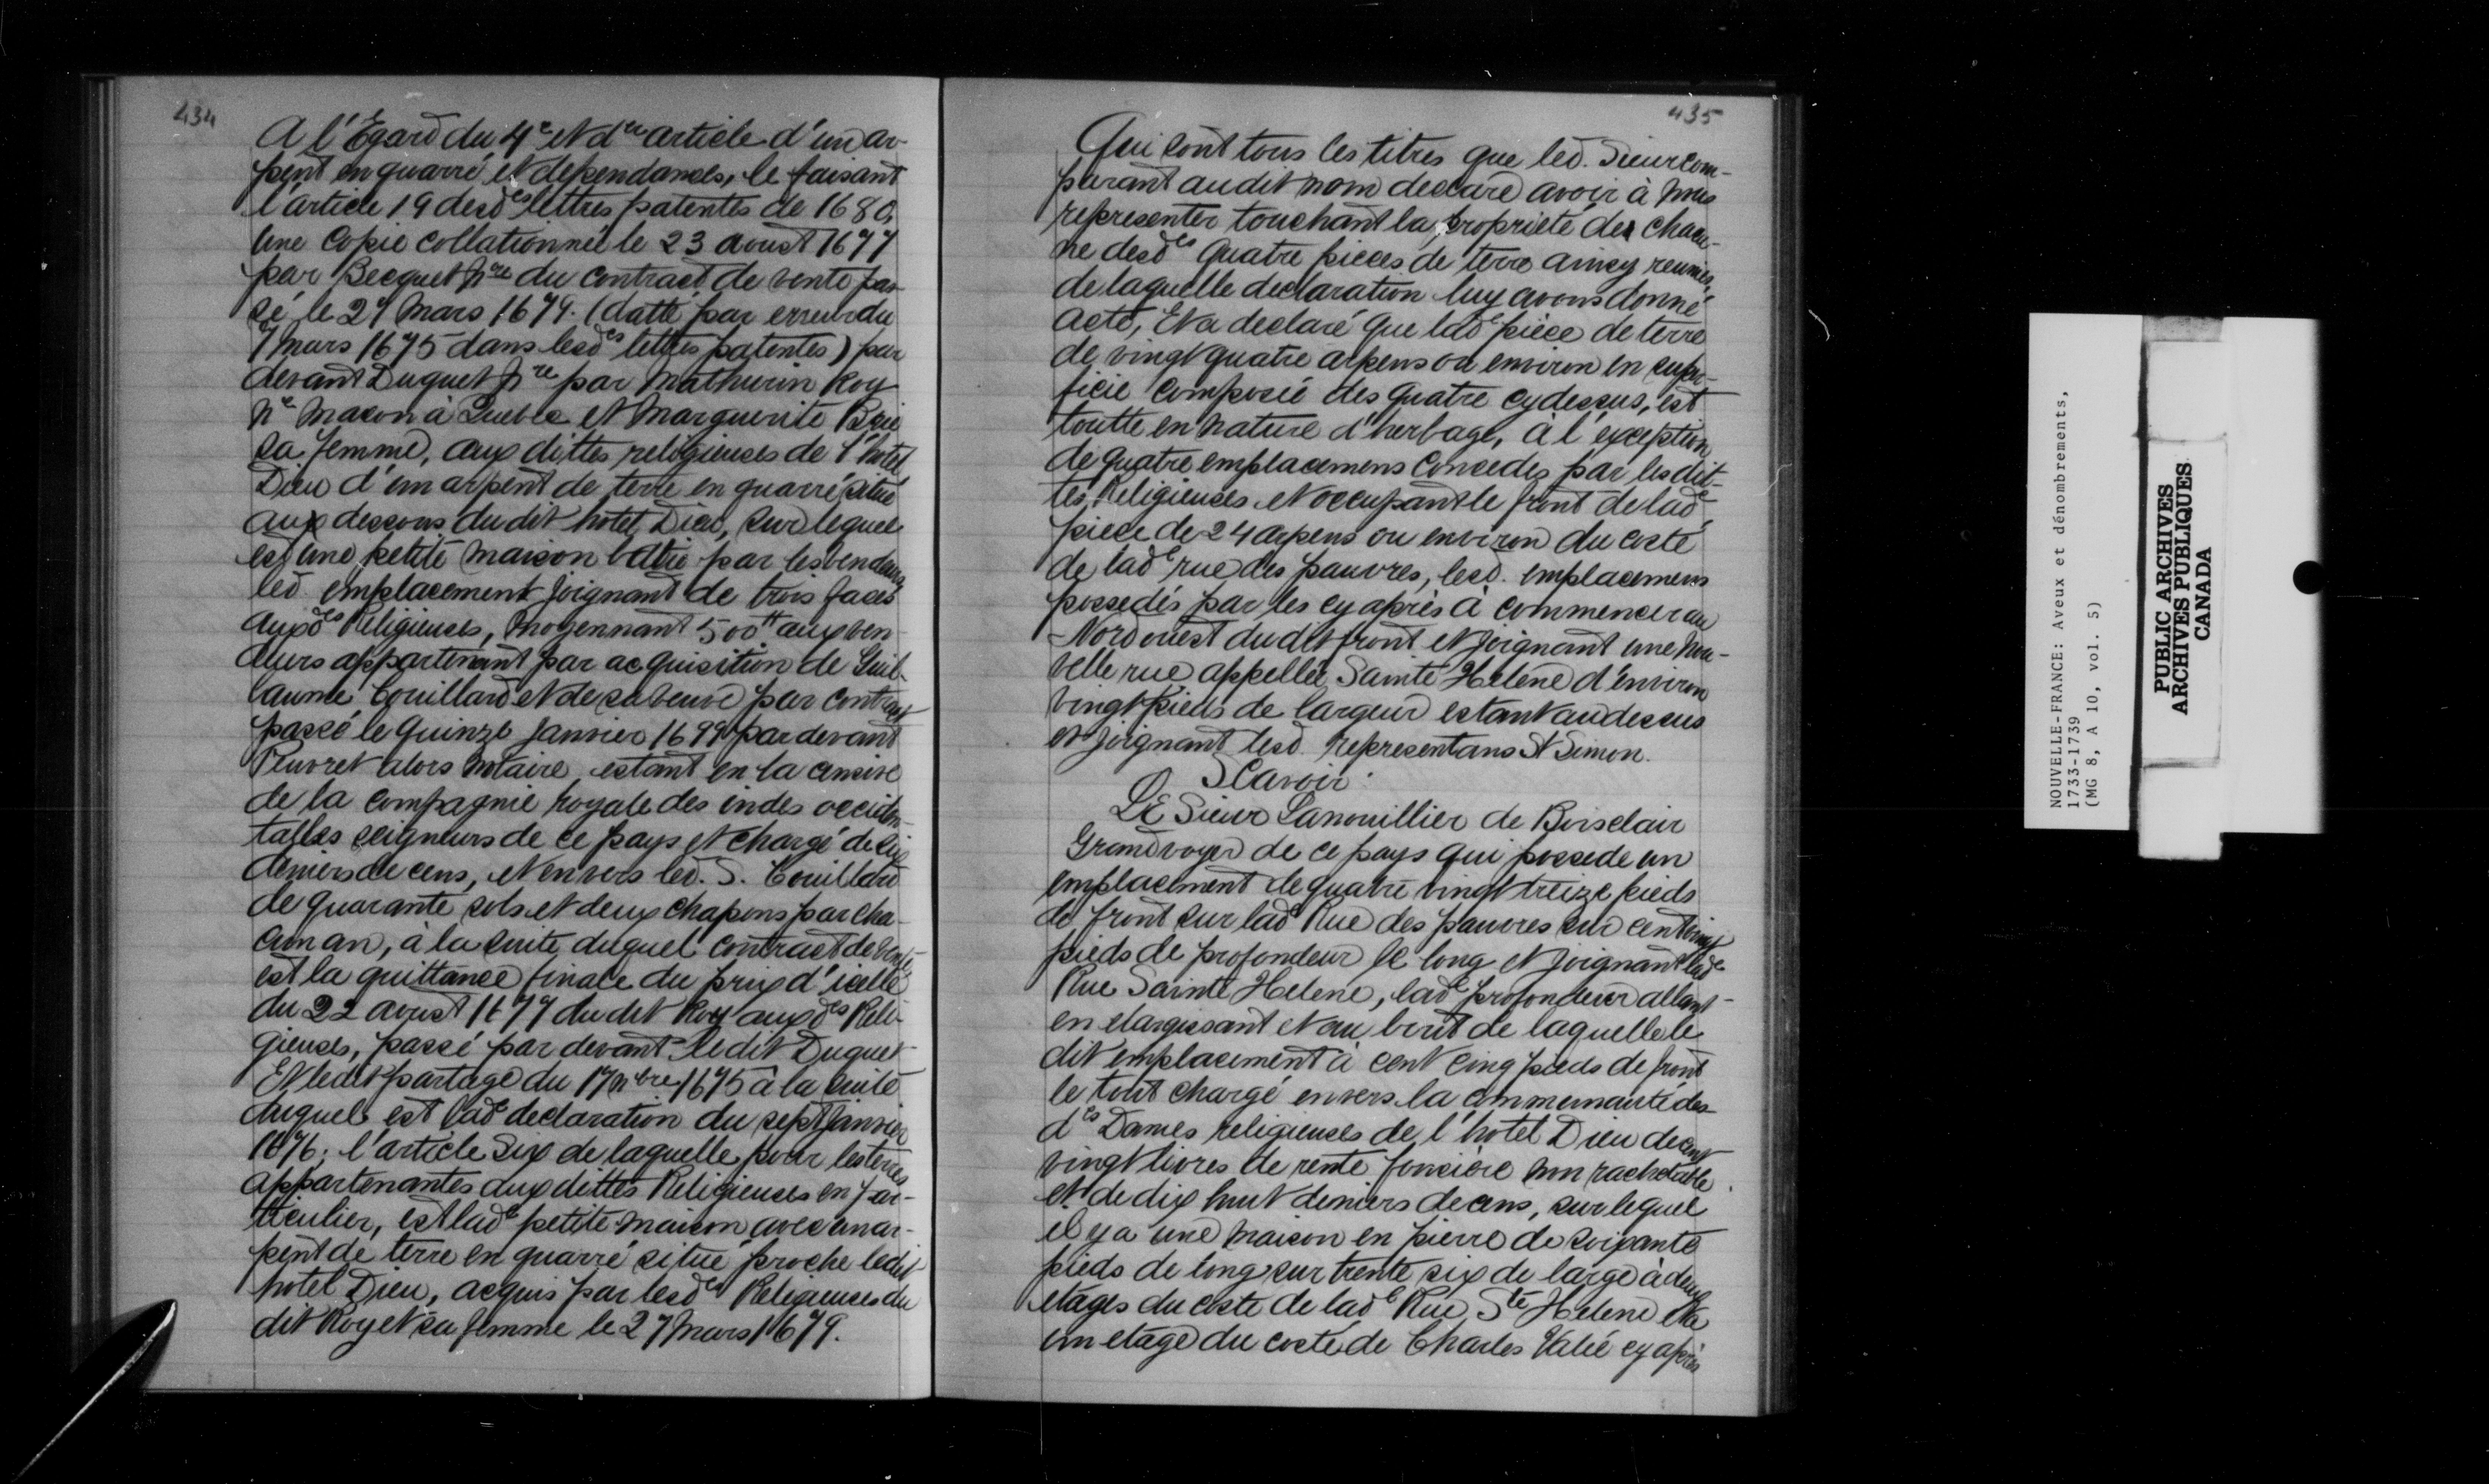 434
A l'Egard du 4e et der article d'un ar-
pent en quarré et dependances, le faisant
l'article 19 desdes lettres patentes de 1680,
Une Copie collationnée le 23 aoust 1677
par Becquet Nre du contract de vente pas-
sé le 27 Mars 1674. (datté par erreur du
7 Mars 1675 dans lesdes lettres patentes) par
devant Duquet Nre par Mathurin Roy
Me Macon à Quebec et Marguerite Biré
sa femme, aux dittes religieuses de l'hotel
Dieu d'un arpent de terre en quarré situé
aux dessous dudit hotel Dieu, sur lequel
est une petite maison battie par les vendeurs
led. emplacement joignant de trois faces
auxdes Religieuses, Moyennant 500tt aux ven-
deurs appartenant par acquisition de Guil-
laume Couillard et de sa veuve par contract
passé le quinze janvier 1699 pardevant
Peuvret alors Notaire, estant en la censive
de la compagnie royale des indes occiden-
talles seigneurs de ce pays et chargé de six
deniers de cens, et envers led. S. Couillard
de quarante sols et deux chapons par cha-
cun an, à la suite duquel contract de vente
est la quittance finale du prix d'icelle
du 22 aoust 1677 dudit Roy auxdes Reli-
gieuses, passé par devant ledit Duquet
Et ledit partage du 17 Nbre 1675 à la suite
duquel est lade declaration du sept janvier
1676; l'article Six de laquelle pour les terres
appartenantes aux dittes Religieuses en par-
ticulier, est lade petite maison avec un ar-
pent de terre en quarré situé proche ledit
hotel Dieu, acquis par lesdes Religieuses du
dit Roy et sa femme le 27 Mars 1674.
435
Qui sont tous les titres que led. Sieur com-
parant audit nom declare avoir à nous
representer touchant la proprieté de chacu-
ne desdes quatre pieces de terre ainsy reunies,
de laquelle declaration luy avons donné
acte, Et a declaré que lade pièce de terre
de vingt quatre arpens ou environ en super-
ficie composée des quatre cydessus, est
toutte en nature d'herbage, à l'exception
de quatre emplacemens concedez par les dit-
tes Religieuses et occupant le front de lade
piece de 24 arpens ou environ du costé
de lade rue des pauvres, lesd. emplacemens
possedés par les cy après à commencer au
Nord ouest dudit front et joignant une nou-
velle rue appellée Sainte Helene d'environ
vingt pieds de largeur estant au dessus
et joignant lesd. representans St Simon.
Scavoir:
LE Sieur Lanouillier de Boisclair
Grand voyer de ce pays qui possede un
emplacement de quatre vingt treize pieds
de front sur lade Rue des pauvres sur cent vingt
pieds de profondeur le long et joignant lade
Rue Sainte Helene, lade profondeur allant
en elargissant et au bout de laquelle le
dit emplacement à cent cinq pieds de front
le tout chargé envers la communauté des
des Dames religieuses de l'hotel Dieu de cent
vingt livres de rente fonciere non rachetable
et de dix huit deniers de cens, sur lequel
il y a une maison en pierre de soixante
pieds de long sur trente six de large à deux
etages du costé de lade Rue Ste Helene et à
un etage du costé de Charles Valée cy après
NOUVELLE-FRANCE: Aveux et dénombrements,
1733-1739
(MG 8, A 10, vol. 5)
PUBLIC ARCHIVES
ARCHIVES PUBLIQUES
CANADA